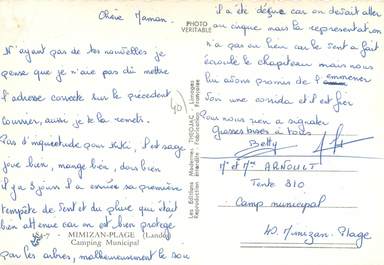 Chère Maman.
N'ayant pas de tes nouvelles je
pense que je n'ai pas dû mettre
l'adresse correcte sur le précédent
courrier, aussi je te la remets.
Pas d'inquiétude pour Kiki, il est sage
joue bien, mange bien, dors bien
il y a 5 jours il a essuié sa première
tempête de vent et du pluie qui était
bien attenue car on est bien protégé
MIMIZAN-PLAGE (Landes)
Camping Municipal
par les arbres, malheureusement le soir
40
PHOTO
VERITABLE
Les Editions Modernes "THEOJAC" - Limoges
Reproduction interdite - Fabrication Française
il a été déçue car on devait aller
au cirque mais la représentation
n'a pas eu lieu car le vent a fait
écroulé le chapiteau mais nous
lui avons promis de l'emmener
voir une corrida et il est fier
Pas nous rien a signaler
Grosses bises à tous
Betty
Mr et Mme ARNOULT
Tente 310
Camp municipal
40. Mimizan-Plage